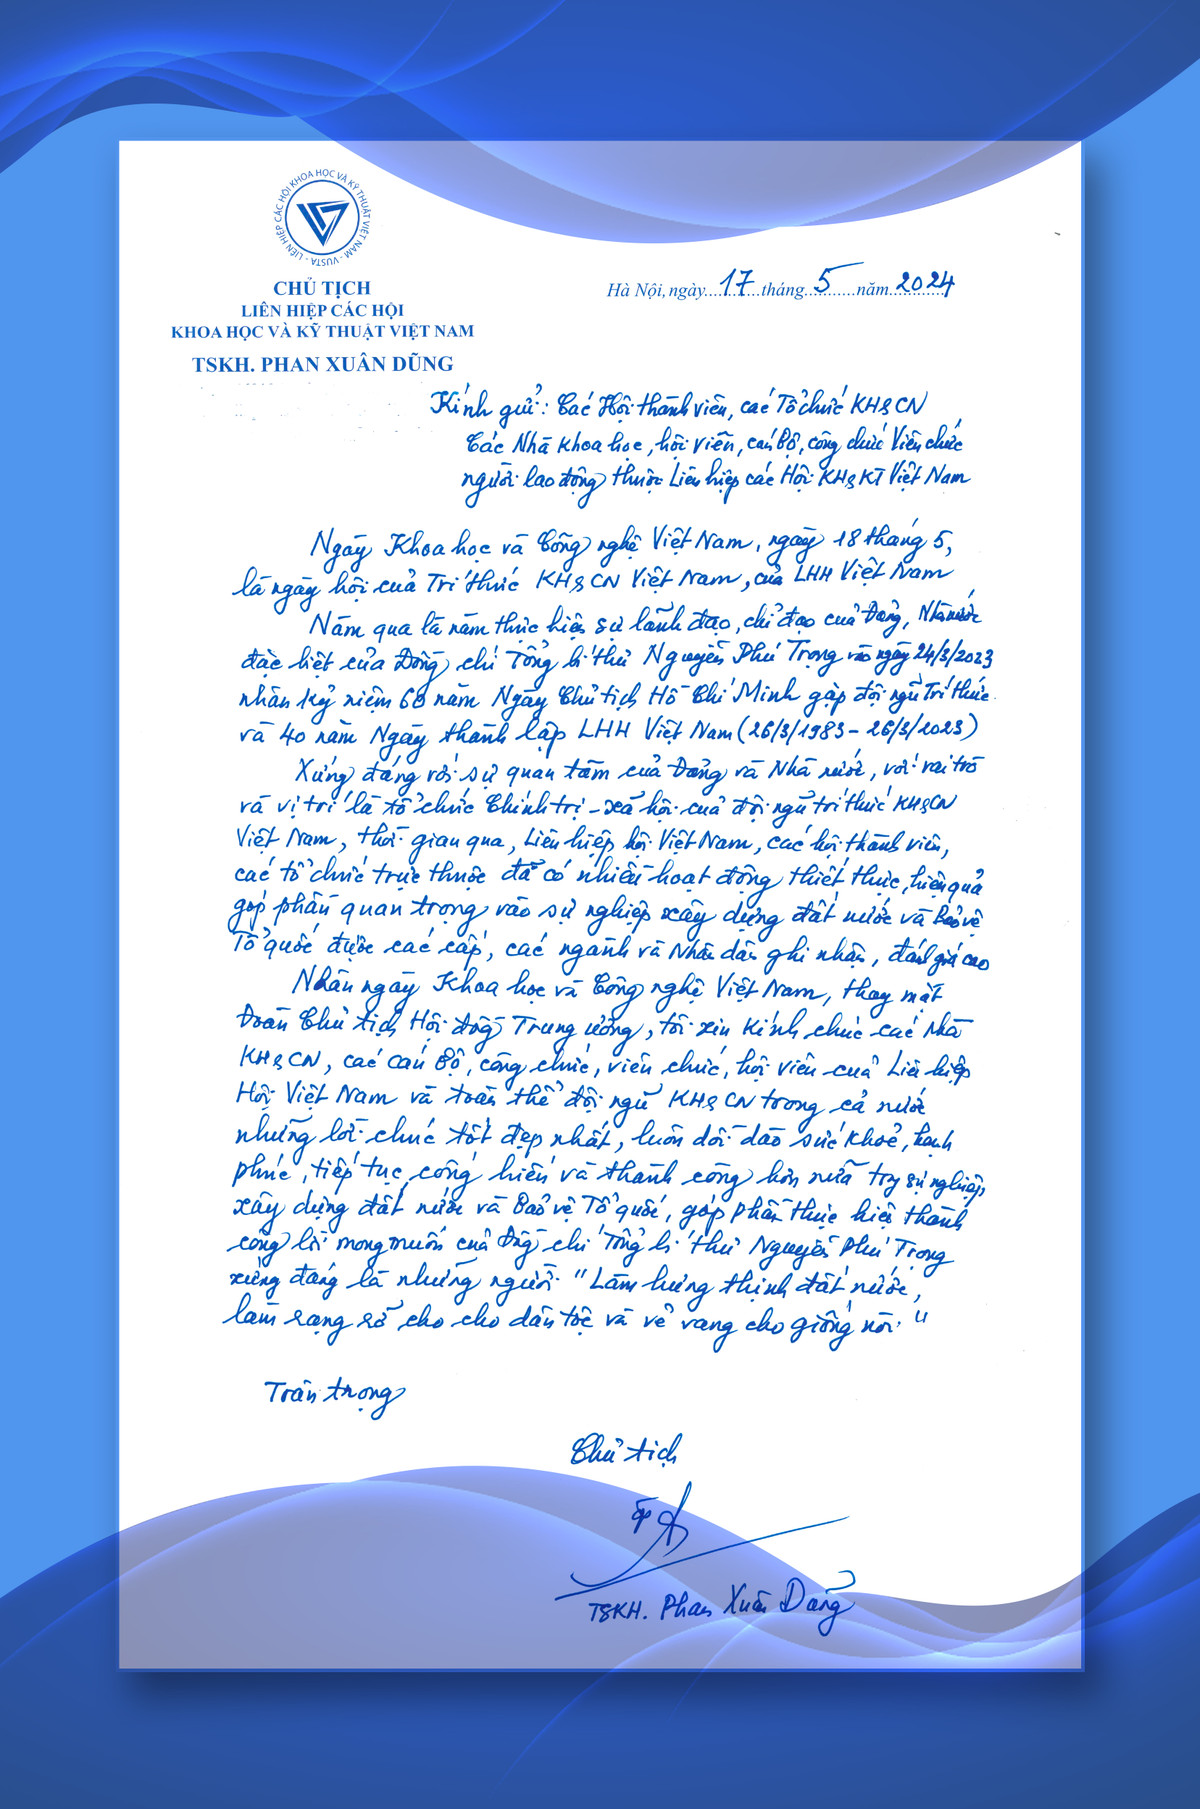 LIÊN HIỆP CÁC HỘI KHOA HỌC VÀ KỸ THUẬT VIỆT NAM - VUSTA -
CHỦ TỊCH
LIÊN HIỆP CÁC HỘI
KHOA HỌC VÀ KỸ THUẬT VIỆT NAM
TSKH. PHAN XUÂN DŨNG
Hà Nội, ngày 17 tháng 5 năm 2024
Kính gửi: Các Hội thành viên, các Tổ chức KH&CN
Các Nhà khoa học, hội viên, cán bộ, công chức Viên chức
người lao động thuộc Liên hiệp các Hội KH&KT Việt Nam
Ngày Khoa học và Công nghệ Việt Nam, ngày 18 tháng 5,
là ngày hội của Trí thức KH&CN Việt Nam, của LHH Việt Nam
Năm qua là năm thực hiện sự lãnh đạo, chỉ đạo của Đảng, Nhà nước
đặc biệt của Đồng chí Tổng bí thư Nguyễn Phú Trọng vào ngày 24/3/2023
nhân kỷ niệm 60 năm Ngày Chủ tịch Hồ Chí Minh gặp đội ngũ Trí thức
và 40 năm Ngày thành lập LHH Việt Nam (26/3/1983 - 26/3/2023)
Xứng đáng với sự quan tâm của Đảng và Nhà nước, với vai trò
và vị trí là tổ chức Chính trị - xã hội của đội ngũ trí thức KH&CN
Việt Nam, thời gian qua, Liên hiệp hội Việt Nam, các hội thành viên,
các tổ chức trực thuộc đã có nhiều hoạt động thiết thực, hiệu quả
góp phần quan trọng vào sự nghiệp xây dựng đất nước và Bảo vệ
Tổ quốc được các cấp, các ngành và Nhân dân ghi nhận, đánh giá cao
Nhân ngày Khoa học và Công nghệ Việt Nam, thay mặt
Đoàn Chủ tịch Hội đồng Trung ương, tôi xin kính chúc các Nhà
KH&CN, các cán bộ, công chức, viên chức, hội viên của Liên hiệp
Hội Việt Nam và toàn thể đội ngũ KH&CN trong cả nước
những lời chúc tốt đẹp nhất, luôn dồi dào sức khoẻ, hạnh
phúc, tiếp tục cống hiến và thành công hơn nữa trong sự nghiệp
xây dựng đất nước và Bảo vệ Tổ quốc, góp phần thực hiện thành
công lời mong muốn của Đồng chí Tổng bí thư Nguyễn Phú Trọng
xứng đáng là những người "Làm hưng thịnh đất nước,
làm rạng rỡ cho cho dân tộc và vẻ vang cho giống nòi."
Trân trọng
Chủ tịch
TSKH. Phan Xuân Dũng